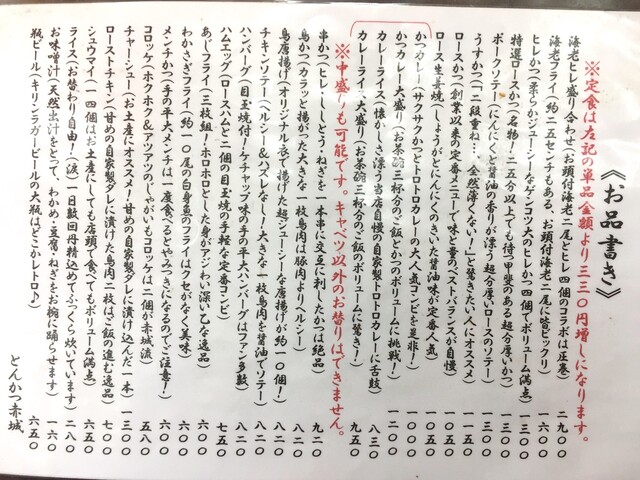 《お品書き》
※定食は左記の単品金額より三三〇円増しになります。
海老ヒレ盛り合わせ(お頭付海老二尾とヒレ四個のコラボは圧巻)
海老フライ(約二五センチもある、お頭付海老二尾に皆ビックリ) 二九〇〇
ヒレかつ(柔らかジューシーなゲンコツ大のヒレかつ四個でボリューム満点) 一六〇〇
特選ロースかつ(名物!二五分以上でも待つ甲斐のある超分厚いかつ)
ポークソテー(にんにくと醤油の香りが漂う超分厚いロースのソテー)
うすかつ(「二段重ね…全然薄くない!」と驚きたい人にオススメ)
ロースかつ(創業以来の定番メニューで味と量のベストバランスが自慢)
ロース生姜焼(しょうがとにんにくのきいた醤油味が定番人気)
かつカレー(サクサクかつとトロトロカレーの大人気コンビを是非!)
かつカレー大盛り(お茶碗三杯分のご飯とかつのボリュームに挑戦!) 一二〇〇
カレーライス(懐かしさ漂う当店自慢の自家製トロトロカレーに舌鼓) 八三〇
カレーライス大盛り(お茶碗三杯分のご飯のボリュームに驚き!) 九五〇
※中盛りも可能です。キャベツ以外のお替りはできません。
串かつ(ヒレ・ししとう・ねぎを一本串に交互に刺したかつは絶品) 九二〇
鳥かつ(カラッと揚がった大きな一枚鳥肉は豚肉よりヘルシー) 八二〇
鳥唐揚げ(オリジナル衣で揚げた超ジューシーな唐揚げが約一〇個!) 八二〇
チキンソテー(ヘルシー&ハズレなし!大きな一枚鳥肉を醤油でソテー) 八二〇
ハンバーグ(目玉焼付!ケチャップ味の手の平大ハンバーグはファン多数) 八二〇
ハムエッグ(ロースハムと二個の目玉焼の手軽な定番コンビ) 七五〇
あじフライ(三枚組!ホロホロとした身がアジわい深い乙な逸品) 八二〇
わかさぎフライ(約一〇尾の白身魚のフライはクセがなく美味) 八二〇
メンチかつ(手の平大メンチは一度食べるとやみつきになるのでご注意!)
コロッケ(ホクホク&アツアツのじゃがいもコロッケは二個が赤城流) 五八〇
チャーシュー(お土産にオススメ!甘めの自家製ダレに漬け込んだ一本) 一三〇〇
ローストチキン(甘めの自家製ダレに漬けた鳥肉二枚はご飯の進む逸品) 七〇〇
シュウマイ(一四個はお土産にしても店頭で食べてもボリューム満点) 六五〇
ライス(お替わり自由!(涙)一日数回丹精込めてふっくら炊いています) 二八〇
お味噌汁(天然出汁をとって、わかめ・豆腐・ねぎをお椀に踊らせます) 一六〇
瓶ビール(キリンラガービールの大瓶はどこかレトロ♪) 六五〇
とんかつ赤城